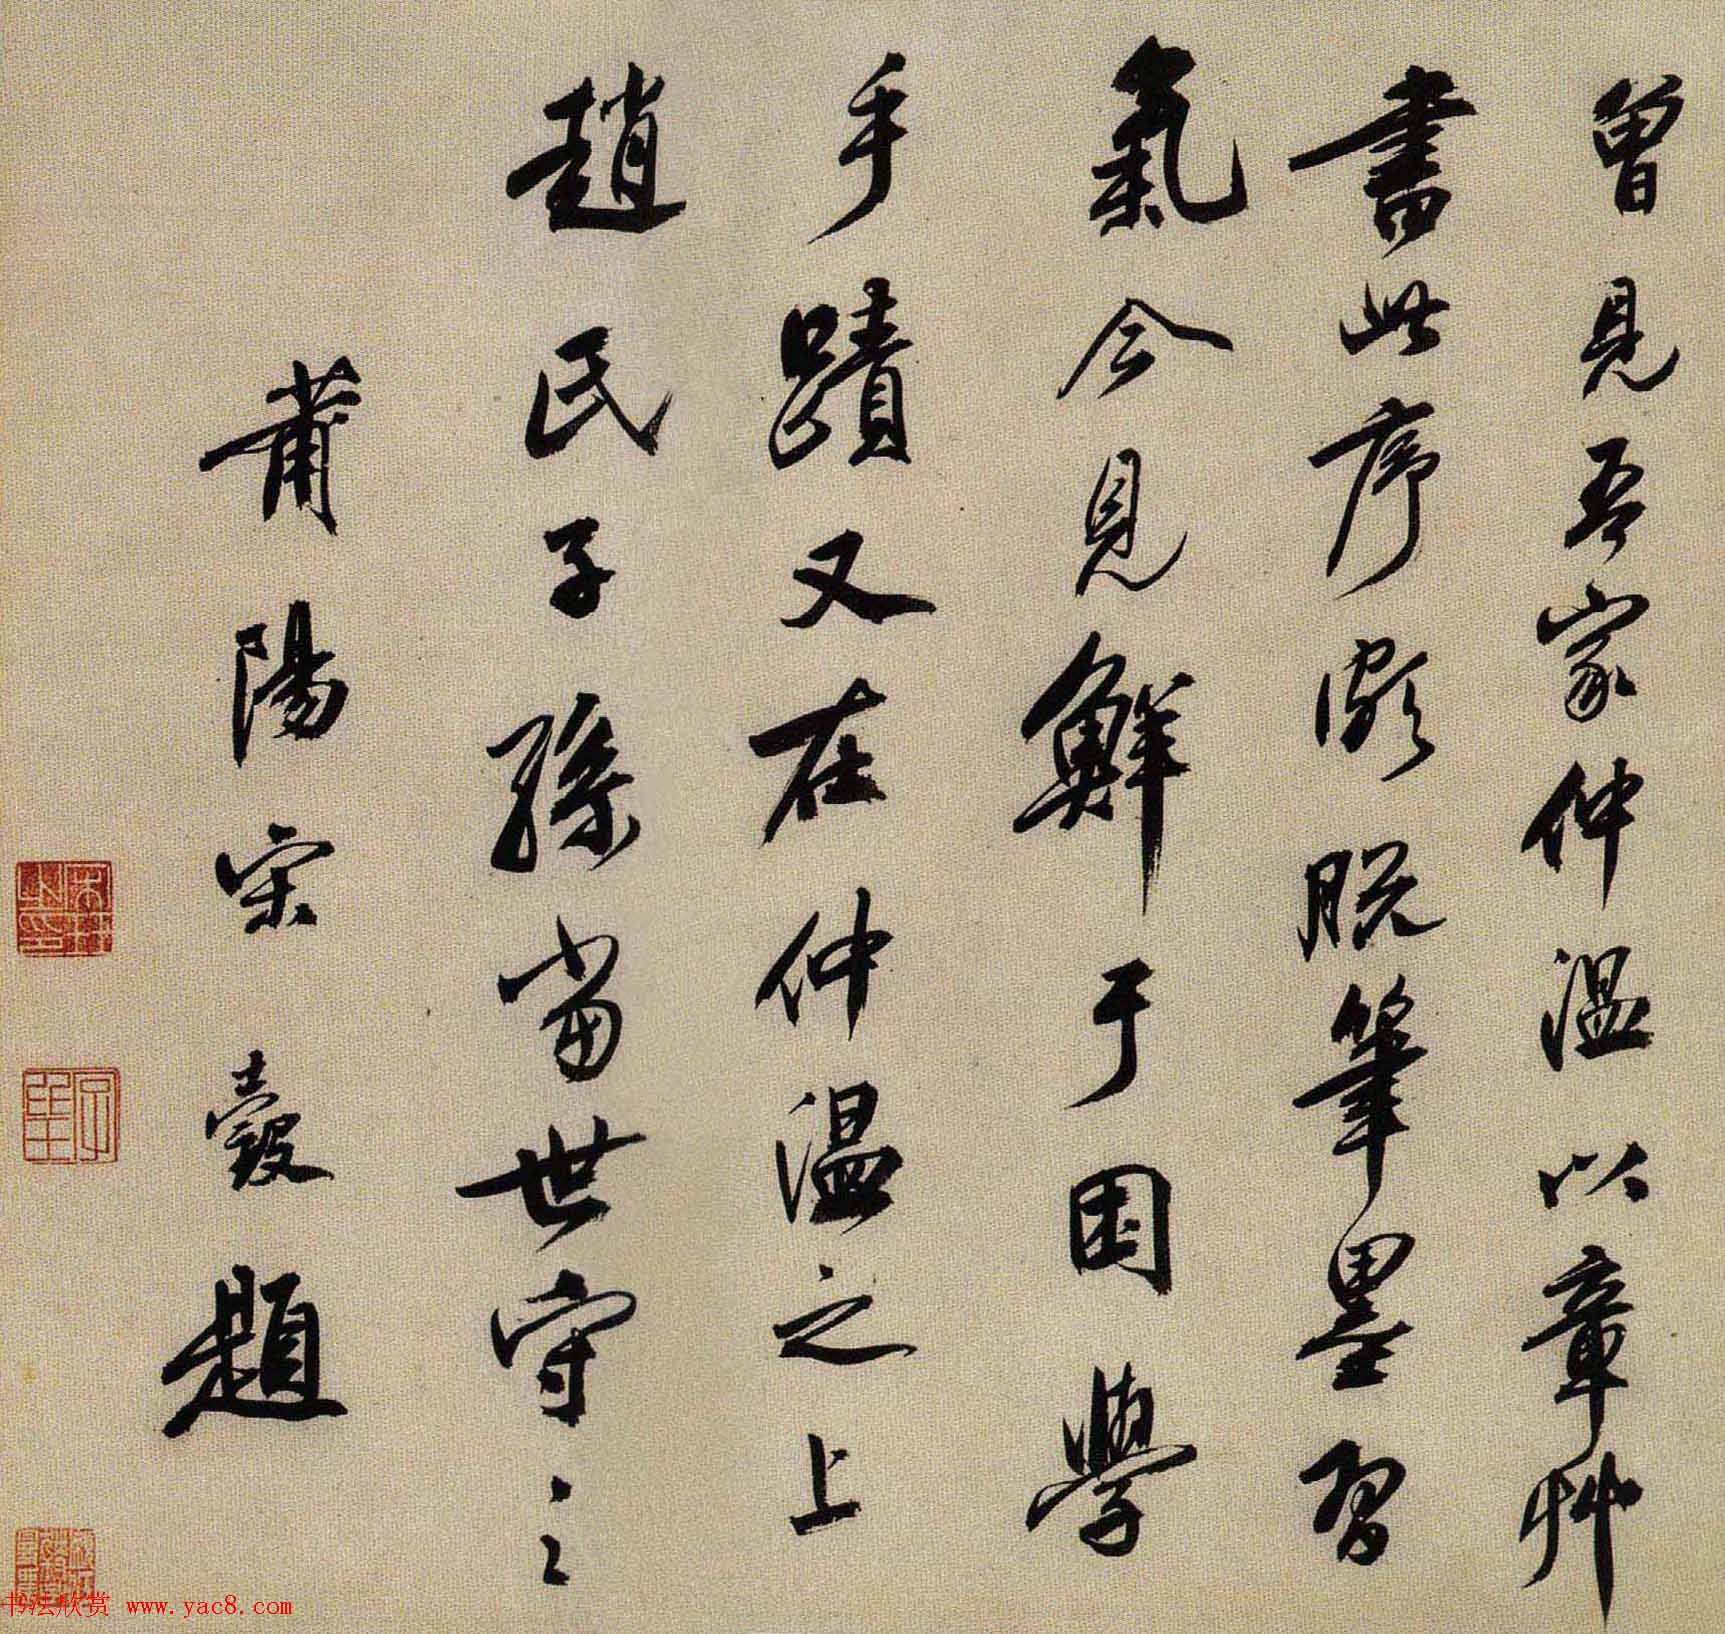 曾見吾家仲温以章艸
書此序頗脱筆墨習
氣今見鮮于困學
手蹟又在仲温之上
趙氏子孫當世守之
莆陽宋珏題
书法欣赏 www.yac8.com